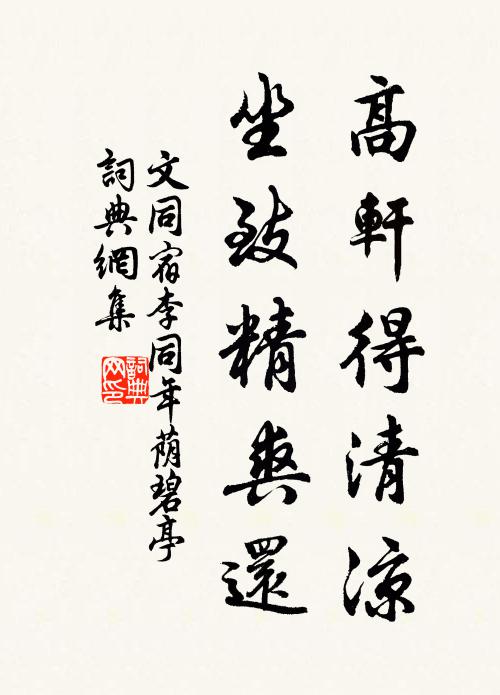 高軒得清涼
坐致精爽還
文同宿李同年蔭碧亭
詞典網集
詞典網印